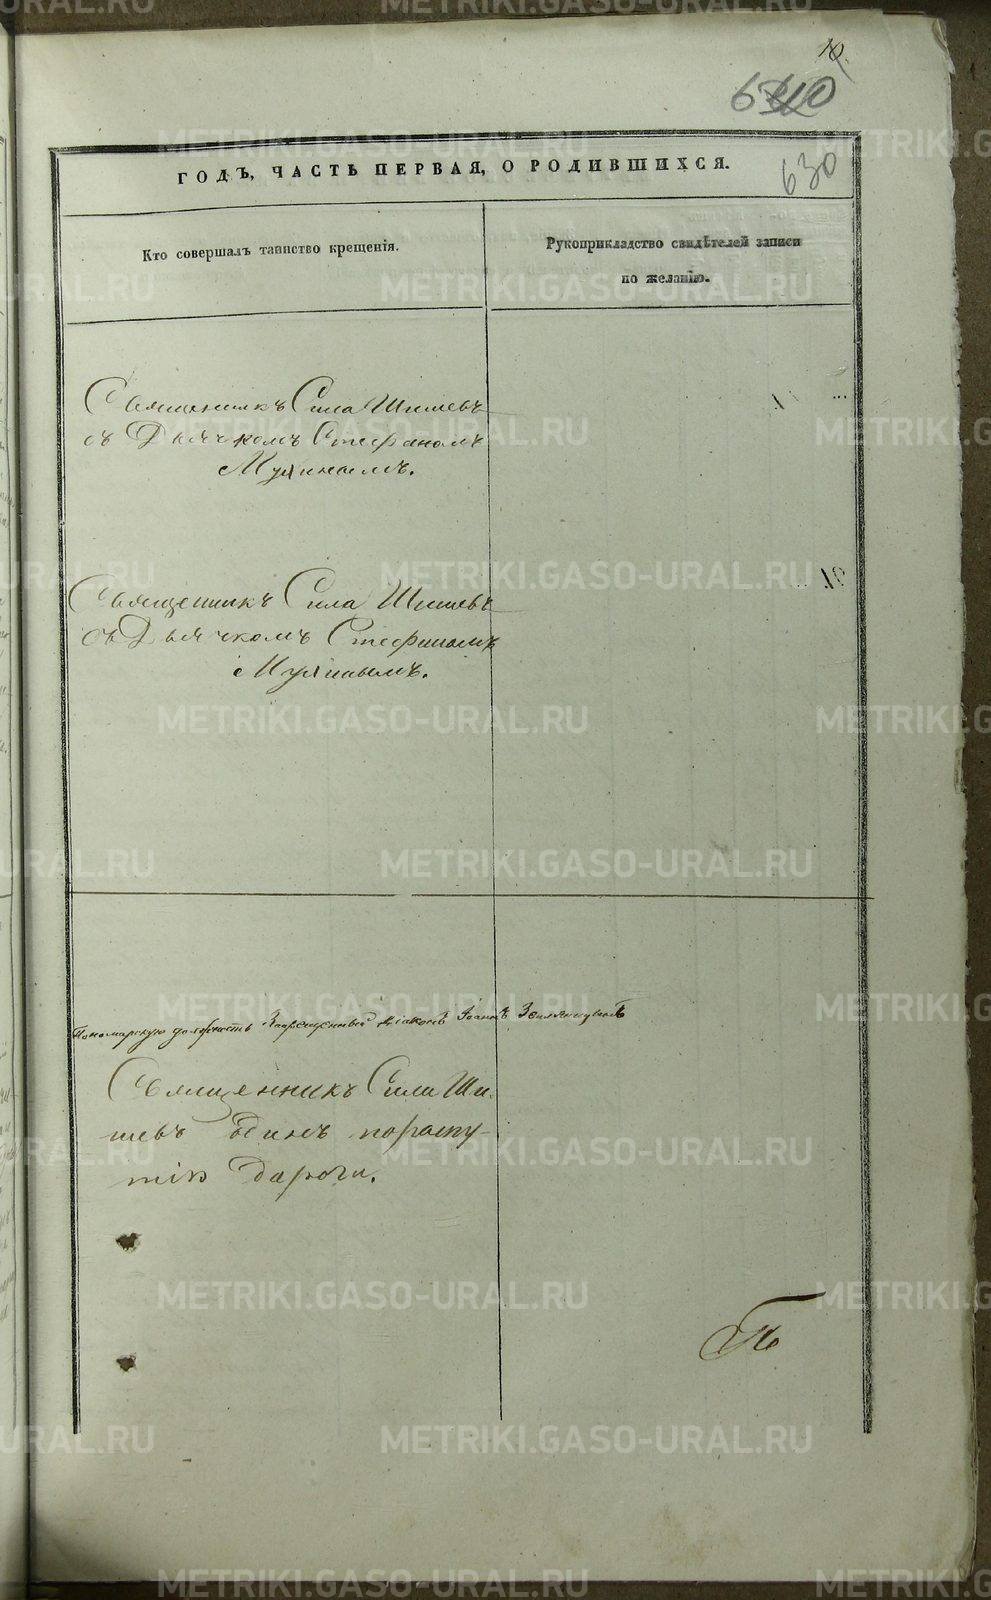 10.
630
ГОДЪ, ЧАСТЬ ПЕРВАЯ, О РОДИВШИХСЯ.
Кто совершалъ таинство крещенія.
Рукоприкладство свидѣтелей записи
по желанію.
Священникъ Сила Шишевъ
съ Дьячкомъ Стефаномъ
Мулинымъ.
Священникъ Сила Шишевъ
съ Дьячкомъ Стефаномъ
Мулинымъ.
Пономарскую должность Запрещенный діаконъ Іоаннъ
Священникъ Сила Ши-
шевъ одинъ пораспу-
тію дароги.
METRIKI.GASO-URAL.RU